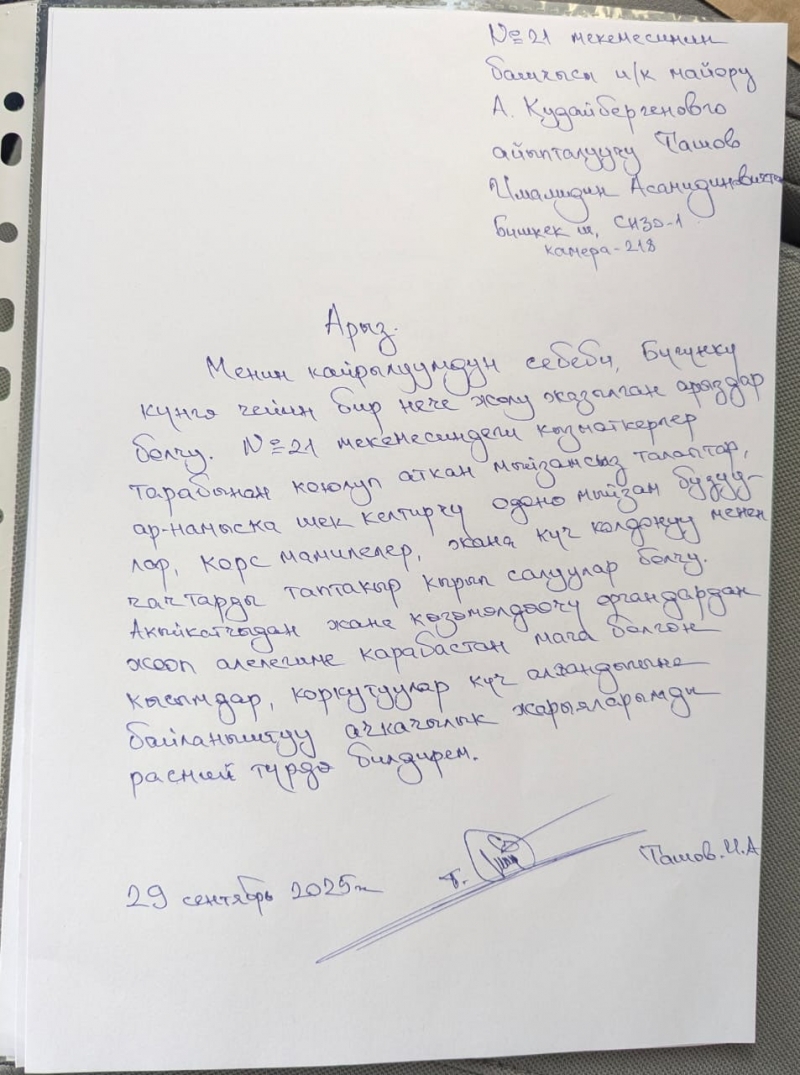 №21 мекемесинин
башчысы и/к майору
А. Кудайбергеновго
айыпталуучу Ташов
Имамидин Асамидинович
Бишкек ш, СИЗО-1
камера-218
Арыз.
Менин кайрылуумдун себеби, Бүгүнкү
күнгө чейин бир нече жолу жазылган арыздар
болчу. №21 мекемесиндеги кызматкерлер
тарабынан коюлуп аткан мыйзамсыз талаптар,
ар-намыска шек келтирчү одоно мыйзам бузуу-
лар, корс мамилелер, жана күч колдонуу менен
чачтарды таптакыр кырып салуулар болчу.
Акыйкатчыдан жана көзөмөлдөөчү органдардан
жооп ала карабастан мага болгон
кысымдар, коркутуулар күч алгандыгына
байланыштуу ачкачылык жарыяларымды
расмий түрдө билдирем.
29 сентябрь 2025ж
Т.
Ташов.И.А